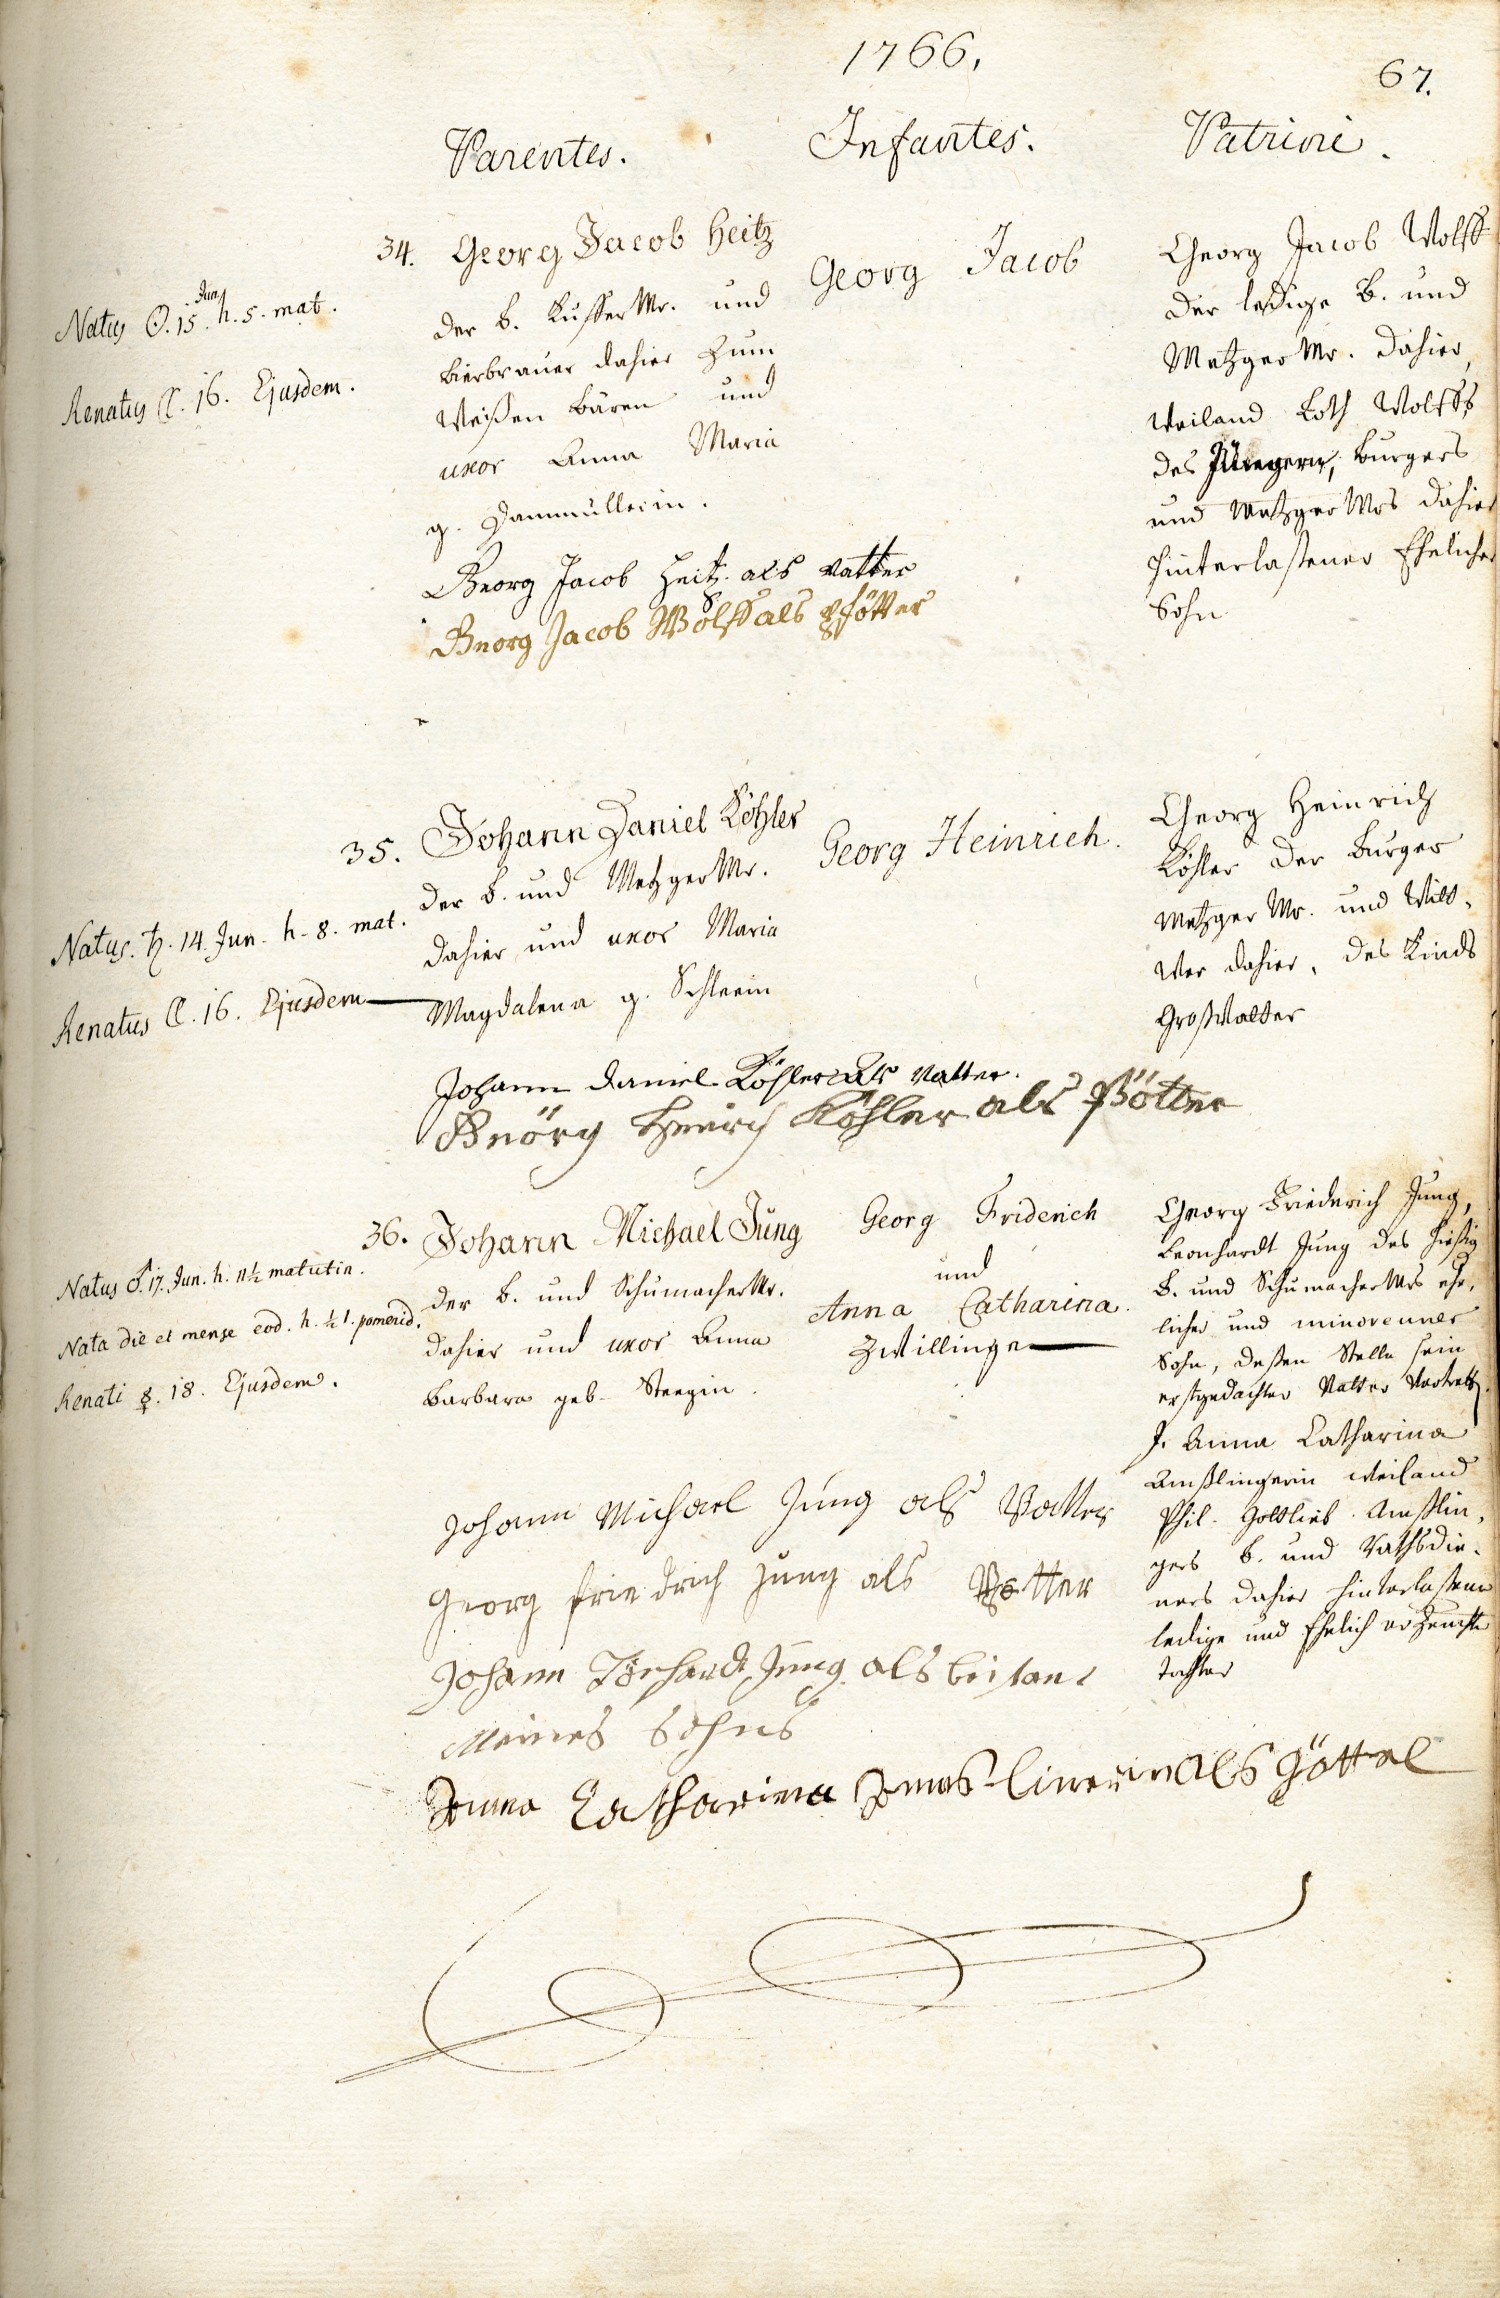 1766.
67.
Parentes.
Infantes.
Patrini.
34.
Georg Jacob Heitz
der B. Kuffer Mr. und
Bierbrauer dahier zum
Weißen Bären und
uxor Anna Maria
g. Dammüllerin.
Georg Jacob
Georg Jacob Wolff
der ledige B. und
Metzger Mr. dahier,
weiland Loth Wolffs
des Jüngern, Burgers
und Metzger Mrs dahier
hinterlaßener Ehelicher
Sohn
Jun.
Natus ☉. 15. h. 5. mat.
Renatus ☾. 16. Ejusdem.
Georg Jacob Heitz als Vatter
Georg Jacob Wolff als Pfötter
35.
Johann Daniel Köhler
der B. und Metzger Mr.
dahier und uxor Maria
Magdalena g. Schleein
Georg Heinrich.
Georg Heinrich
Köhler der Burger
Metzger Mr. und Witt-
wer dahier, des Kinds
Großvatter
Natus. ♄. 14. Jun. h. 8. mat.
Renatus ☾. 16. Ejusdem
Johann Daniel Köhler als Vatter.
Geörg Henrich Köhler als Pfötter
36.
Johann Michael Jung
der B. und Schumacher Mr.
dahier und uxor Anna
Barbara geb. Steegin.
Georg Friderich
und
Anna Catharina.
Zwillinge
Georg Friederich Jung,
Leonhardt Jung des hießig
B. und Schumacher Mrs ehe-
licher und minorenner
Sohn, deßen Stelle sein
erstgedachter Vatter Vertratt.
J. Anna Catharina
Amßlingerin weiland
Phil. Gottlieb Amßlin-
gers B. und Rathsdie-
ners dahier hinterlaßene
ledige und Ehelich erzeugte
Tochter
Natus ♂. 17. Jun. h. 11½ matutin.
Nata die et mense eod. h. ½ 1. pomerid.
Renati ☿. 18. Ejusdem.
Johann Michael Jung als Vatter
Georg friedrich Jung als Pfetter
Johann Jung als beistand
Meines Sohns
Anna Catharina als Göttel